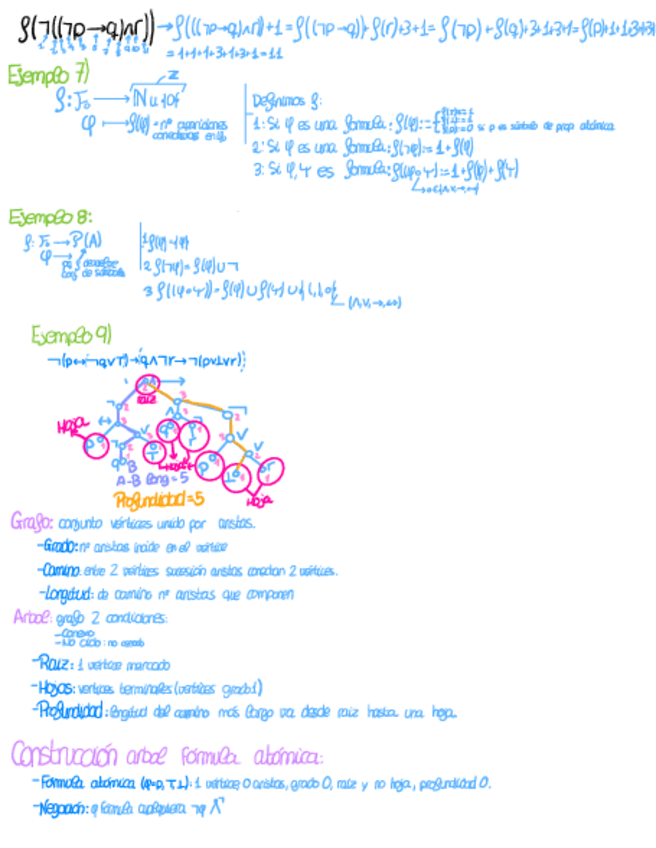 f(¬((¬p→q)∧r)) → f(((¬p→q)∧r))+1 = f((¬p→q))+f(r)+3+1 = f(¬p)+f(q)+3+1+3+1 = f(p)+1+1+3+1+3+1
= 1+1+1+3+1+3+1 = 11
Ejemplo 7)
f: F₀ → ℕ ∪ {0}
φ ↦ f(φ) = nº conectivas en φ
Definimos f:
1: Si φ es una formula: f(φ):= si p es símbolo de prop atómica
2: Si φ es una formula: f(¬φ):= 1+f(φ)
3: Si φ,ψ es formula: f(φ∘ψ):= 1+f(φ)+f(ψ)
Ejemplo 8:
f: F₀ → P(A)
φ →
1 f(φ) = {φ}
2 f(¬φ) = f(φ) ∪ ¬
3 f((φ∘ψ)) = f(φ) ∪ f(ψ) ∪ {(,),∘}
(∧,∨,→,↔)
Ejemplo 9)
¬(p↔¬q∨⊤)→q∧¬r→¬(p∨⊥∨r)
raiz
Hoja
Hojas
A-B long = 5
Profundidad = 5
Hoja
Grafo: conjunto vértices unido por aristas.
-Grado: nº aristas incide en el vértice
-Camino: entre 2 vértices sucesión aristas conectan 2 vértices.
-Longitud: de camino nº aristas que componen
Arbol: grafo 2 condiciones:
-Conexo
-No ciclo: no cerrado
-Raiz: 1 vértice marcado
-Hojas: vertices terminales (vertices grado 1)
-Profundidad: longitud del camino más largo va desde raiz hasta una hoja.
Construcción arbol formula atómica:
-Formula atómica (φ=p, ⊤,⊥): 1 vértice 0 aristas, grado 0, raiz y no hoja, profundidad 0.
-Negación: φ formula cualquiera ¬φ